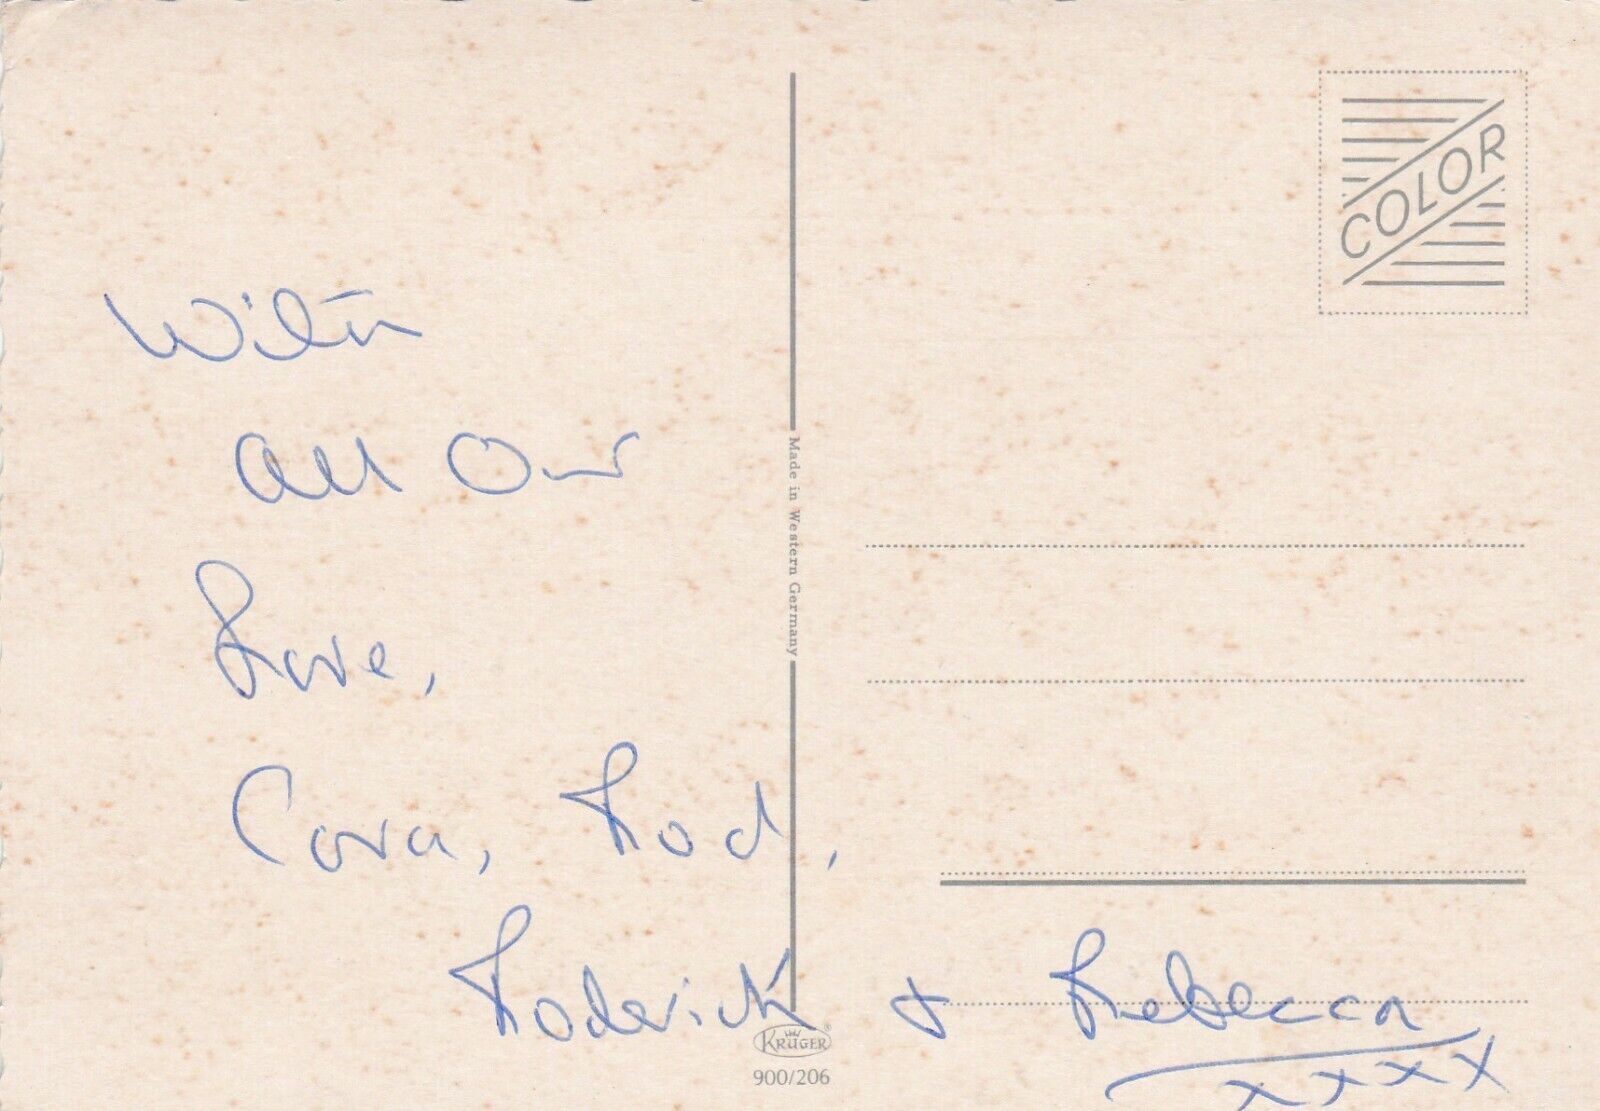 With
all Our
Love,
Cora, Rod,
Roderick + Rebecca
xxxx
COLOR
Made in Western Germany
KRÜGER
900/206